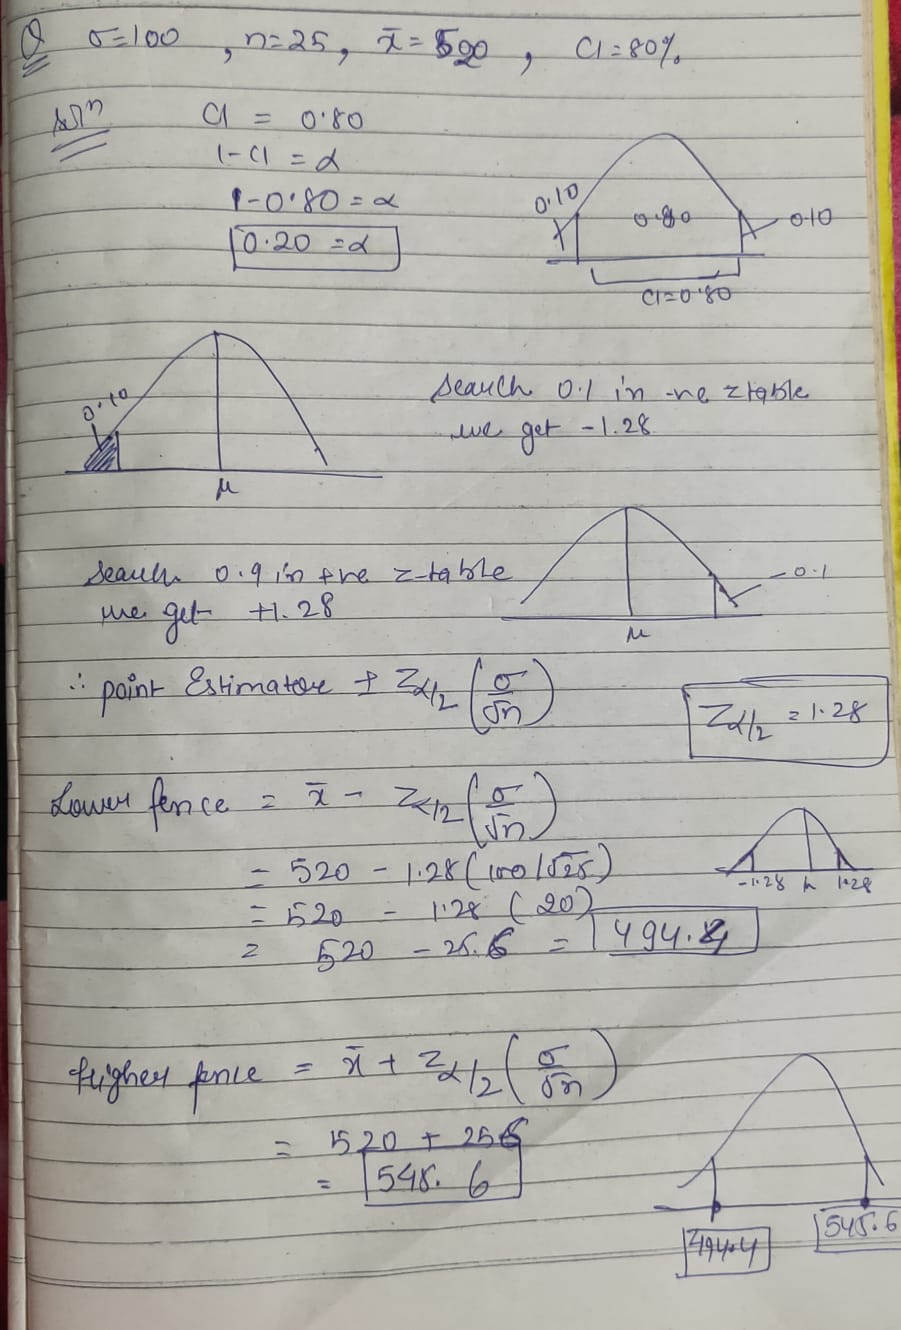 Q σ=100 , n=25, x̄ = 520 , CI=80%.
Solⁿ CI = 0.80
1-CI = α
1-0.80 = α
0.20 = α
0.10 0.80 0.10
CI=0.80
0.10
μ
Search 0.1 in -ve z table
we get -1.28
Search 0.9 in +ve z-table
we get +1.28
0.1
μ
∴ point Estimator ± Zα/2 (σ/√n)
Zα/2 = 1.28
Lower fence = x̄ - Zα/2 (σ/√n)
= 520 - 1.28(100/√25)
= 520 - 1.28 (20)
= 520 - 25.6 = 494.4
-1.28 μ 1.28
Higher fence = x̄ + Zα/2 (σ/√n)
= 520 + 256
= 545.6
494.4 545.6